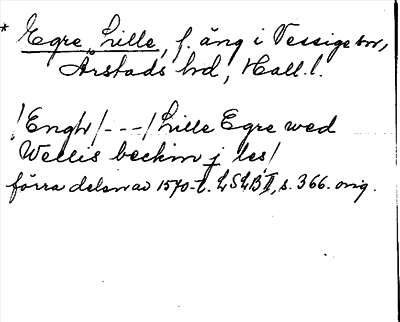 * Egre, Lille, f. äng i Vessige sn,
Årstads hd, Hall. l.
/Engh/---/Lille Egre wed
Wellis beckin j les/
förra delen av 1570-t. LSLB II, s. 366. orig.